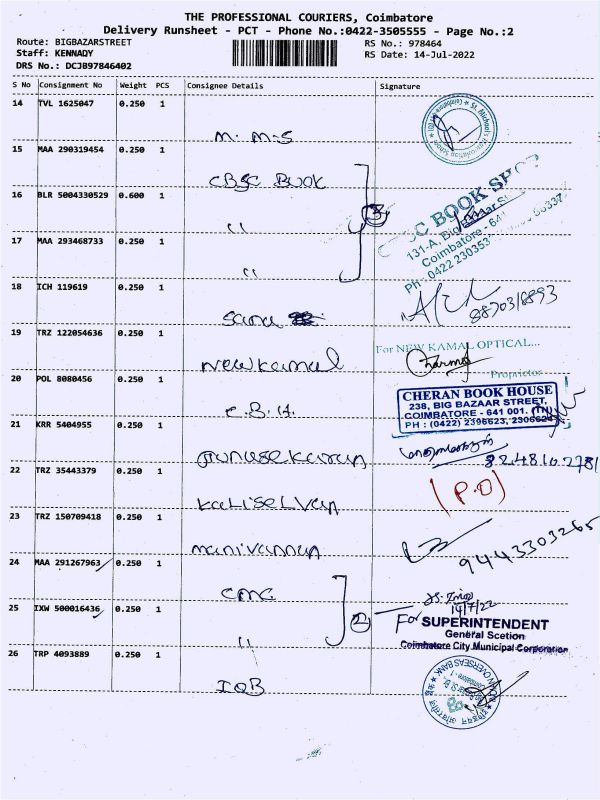 THE PROFESSIONAL COURIERS, Coimbatore
Delivery Runsheet - PCT - Phone No.:0422-3505555 - Page No.:2
Route: BIGBAZARSTREET
Staff: KENNADY
DRS No.: DCJB97846402
RS No.: 978464
RS Date: 14-Jul-2022
S No Consignment No Weight PCS Consignee Details Signature
14 TVL 1625047 0.250 1
M.M.S
15 MAA 290319454 0.250 1
CBSC Book
16 BLR 5004330529 0.600 1
"
3
BOOK SHOP
131-A, Big Bazaar St
Coimbatore - 641
Ph : 0422 230353
17 MAA 293468733 0.250 1
"
18 ICH 119619 0.250 1
Sara
8870318893
19 TRZ 122054636 0.250 1
New Kamal
For NEW KAMAL OPTICAL...
Proprietor
20 POL 8080456 0.250 1
C.B.H.
CHERAN BOOK HOUSE
238, BIG BAZAAR STREET,
COIMBATORE - 641 001. (TN)
PH : (0422) 2396623, 2306624
21 KRR 5404955 0.250 1
Gunasekaran
8248102781
22 TRZ 35443379 0.250 1
Kaliselvan
(P.O)
23 TRZ 150709418 0.250 1
Manivannan
9443303265
24 MAA 291267963 0.250 1
CMC
2
14/7/22
25 IXW 500016436 0.250 1
"
For SUPERINTENDENT
General Scetion
Coimbatore City Municipal Corporation
26 TRP 4093889 0.250 1
IOB
OVERSEAS BANK